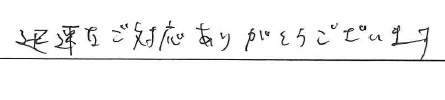 迅速なご対応ありがとうございます